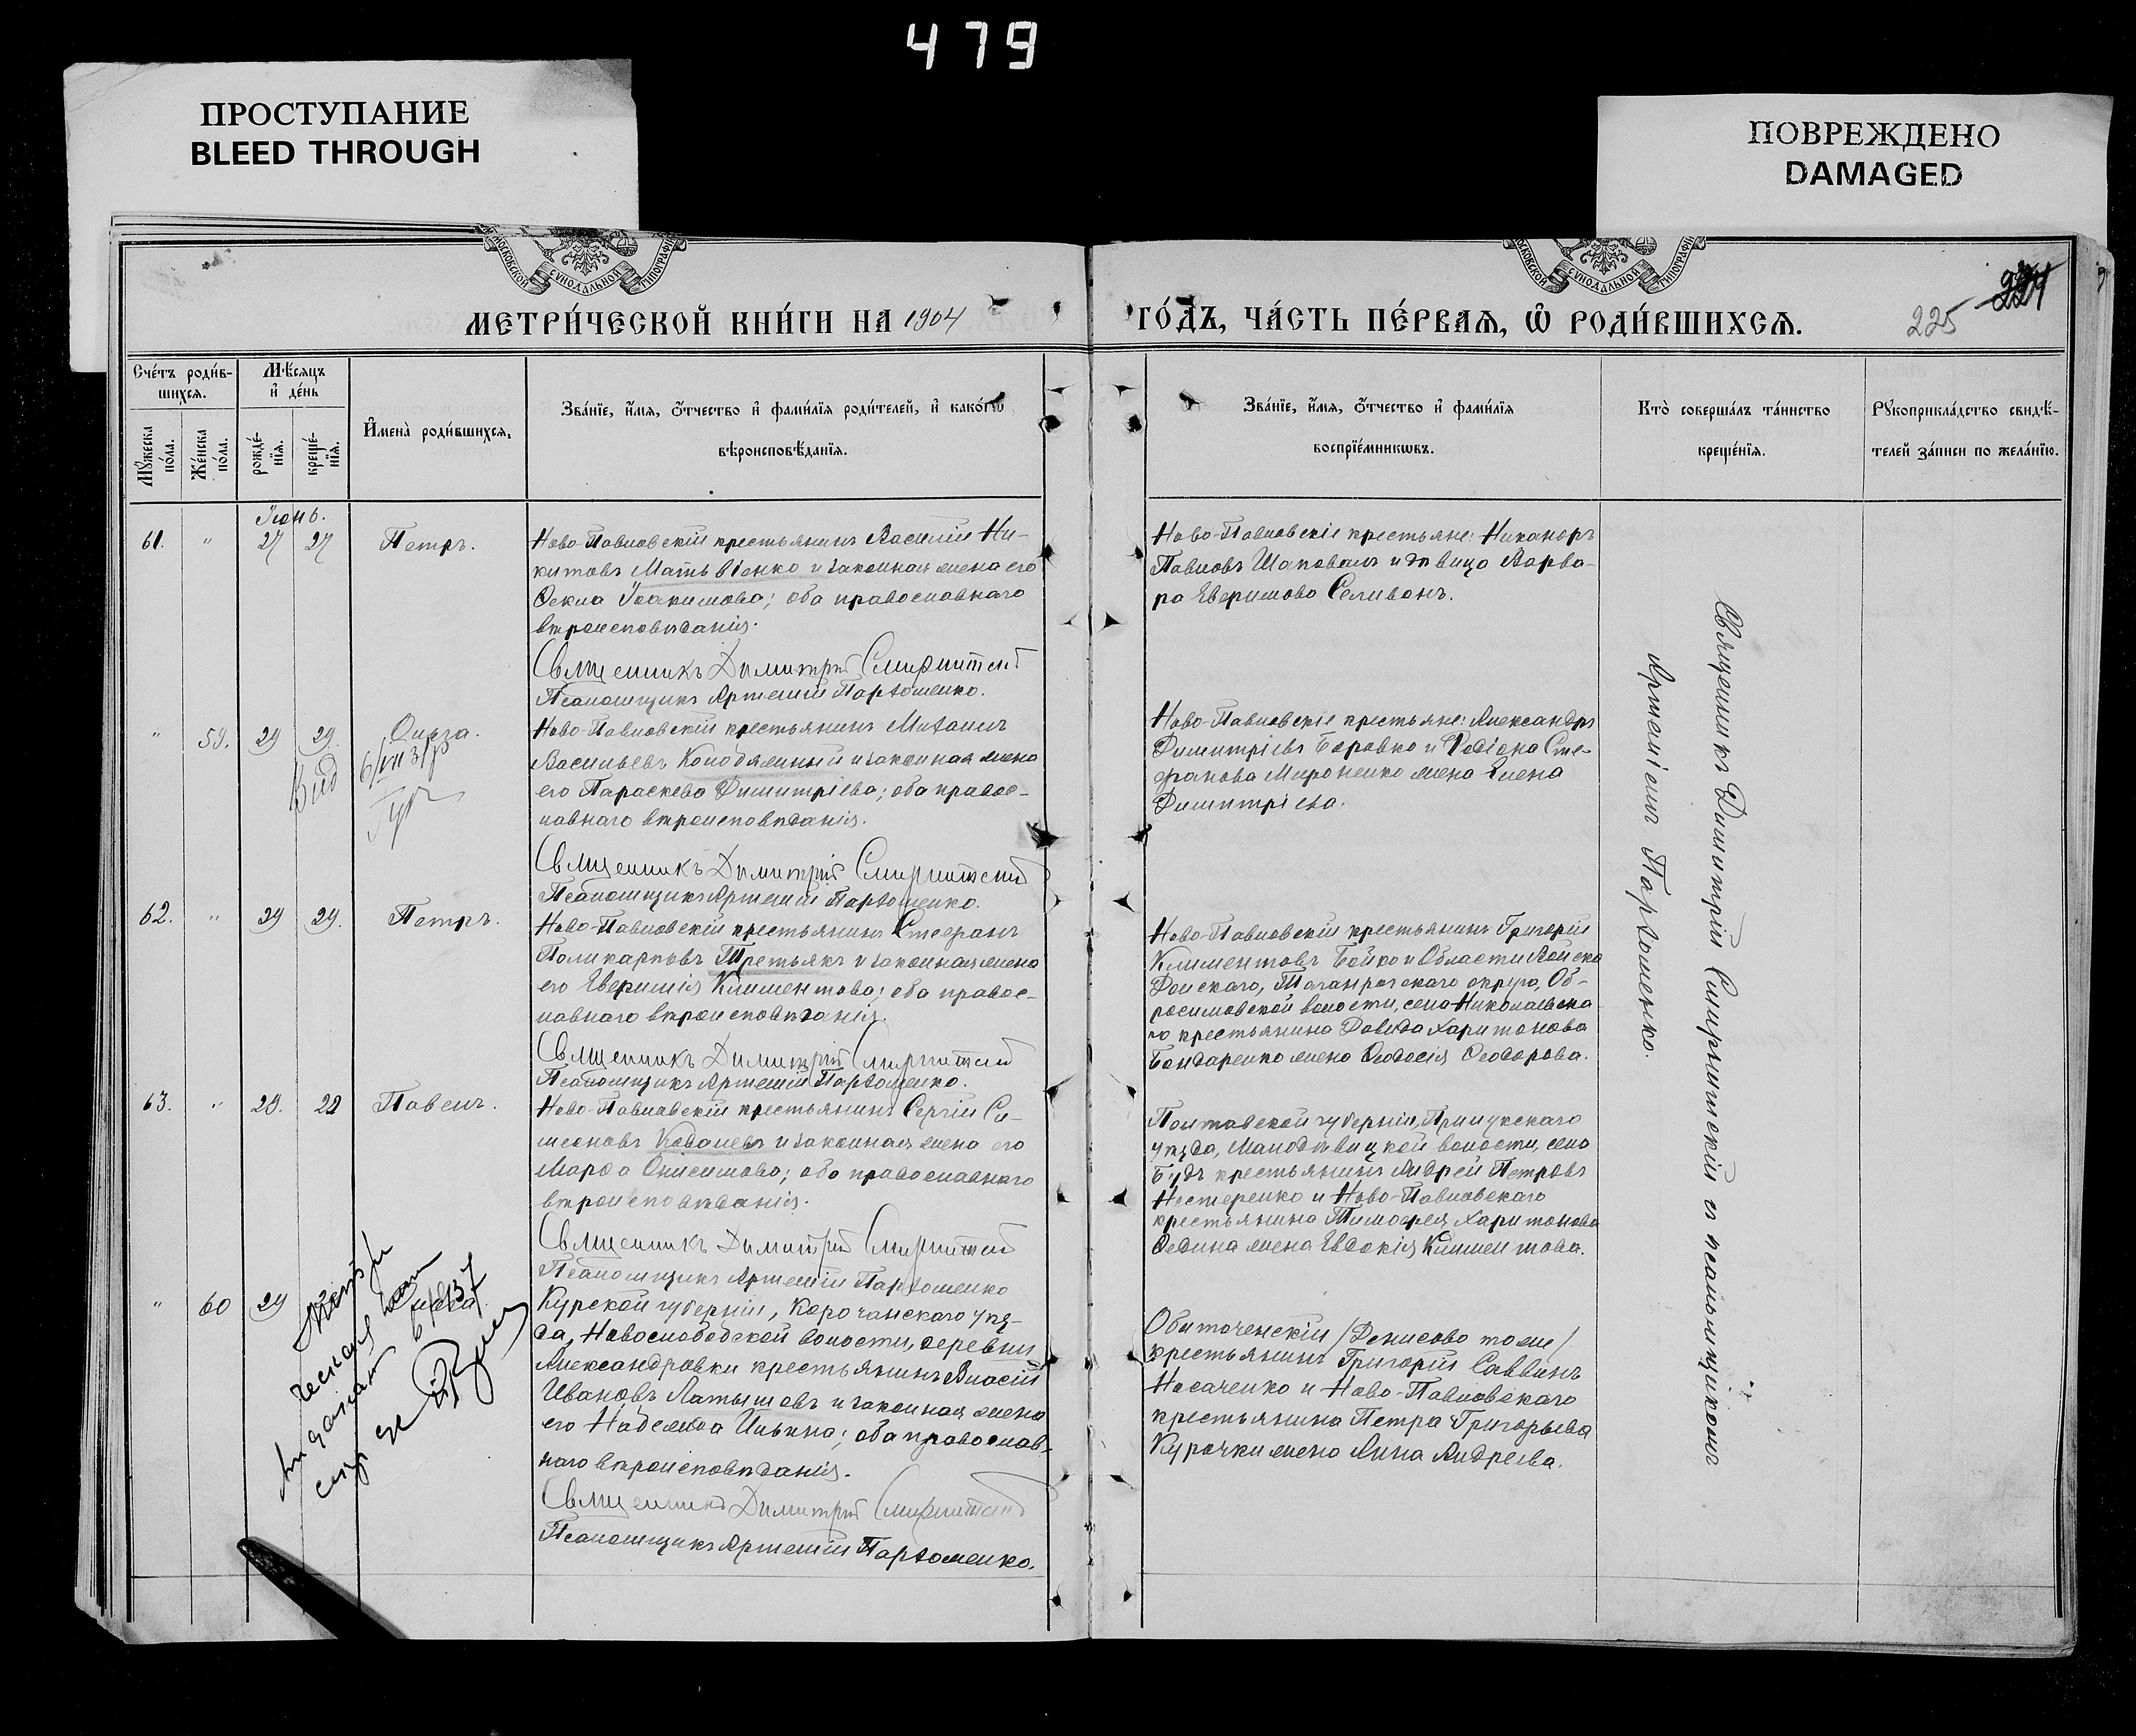 479
ПРОСТУПАНИЕ
BLEED THROUGH
ПОВРЕЖДЕНО
DAMAGED
МОСКОВСКОЙ СѴНОДАЛЬНОЙ ТИПОГРАФІИ
МОСКОВСКОЙ СѴНОДАЛЬНОЙ ТИПОГРАФІИ
МЕТРИ́ЧЕСКОЙ КНИ́ГИ НА 1904
ГО́ДЪ, ЧА́СТЬ ПЕ́РВАЯ, Ѡ РОДИ́ВШИХСЯ.
224
225
Сче́тъ роди́в-
шихся.
Мѣ́сяцъ
и де́нь
Мꙋжеска по́ла.
Же́нска по́ла.
рожде́-
нїя.
креще́-
нїя.
И҆мена̀ роди́вшихся.
Зва́нїе, и҆́мя, ѻ҆́тчество и҆ фами́лїя роди́телей, и҆ како́гѡ
вѣроисповѣ́данїя.
Зва́нїе, и҆́мя, ѻ҆́тчество и҆ фами́лїя
воспрїе́мникѡвъ.
Кто̀ соверша́лъ та́инство
креще́нїя.
Рꙋкоприкла́дство свидѣ́-
телей за́писи по жела́нїю.
Іюнь.
61. " 27 27 Петръ.
Ново-Павловскій крестьянинъ Василій Ни-
китовъ Матьвіенко и законная жена его
Ѳекла Іоакимова; оба православнаго
вѣроисповѣданія.
Священникъ Димитрій Смирнитскій
Псаломщикъ Артемій Пархоменко.
Ново-Павловскіе крестьяне: Никаноръ
Павловъ Шаповалъ и дѣвица Варва-
ра Евѳимова Селиванъ.
" 59. 29 29. Ольга.
6/VII 31 р
Вид
Ново-Павловскій крестьянинъ Михаилъ
Васильевъ Колобяжный и законная жена
его Параскева Димитріева; оба правос-
лавнаго вѣроисповѣданія.
Священникъ Димитрій Смирнитскій
Псаломщикъ Артемій Пархоменко.
Ново-Павловскіе крестьяне: Александръ
Димитріевъ Боровко и Родіона Сте-
фанова Мироненко жена Елена
Димитріева.
62. " 29 29. Петръ.
Ново-Павловскій крестьянинъ Стефанъ
Поликарповъ Третьякъ и законная жена
его Евѳимія Климентова; оба правос-
лавнаго вѣроисповѣданія.
Священникъ Димитрій Смирнитскій
Псаломщикъ Артемій Пархоменко.
Ново-Павловскій крестьянинъ Григорій
Климентовъ Бойко и Области Войска
Донскаго, Таганрогскаго округа, Об-
росимовской волости, села Николаевска-
го крестьянина Давида Харитонова
Бондаренко жена Ѳеодосія Ѳеодорова.
63. " 29. 29 Павелъ.
Ново-Павловскій крестьянинъ Сергій Си-
меоновъ Ковалевъ и законная жена его
Марѳа Онисимова; оба православнаго
вѣроисповѣданія.
Священникъ Димитрій Смирнитскій
Псаломщикъ Артемій Пархоменко
Полтавской губерніи, Прилукскаго
уѣзда, Малодѣвицкой волости, села
Будъ крестьянинъ Андрей Петровъ
Нестеренко и Ново-Павловскаго
крестьянина Тимоѳея Харитонова
Ѳедина жена Евдокія Климентова.
" 60 29
Курской губерніи, Корочанскаго уѣз-
да, Новослободской волости, деревни
Александровки крестьянинъ Власій
Ивановъ Латышевъ и законная жена
его Надежда Ильина; оба православ-
наго вѣроисповѣданія.
Священникъ Димитрій Смирнитскій
Псаломщикъ Артемій Пархоменко.
Обиточенскій /Денисово тоже/
крестьянинъ Григорій Саввинъ
Носаченко и Ново-Павловскаго
крестьянина Петра Григорьева
Курочки жена Анна Андреева.
Священникъ Димитрій Смирнитскій съ псаломщикомъ
Артеміемъ Пархоменко.